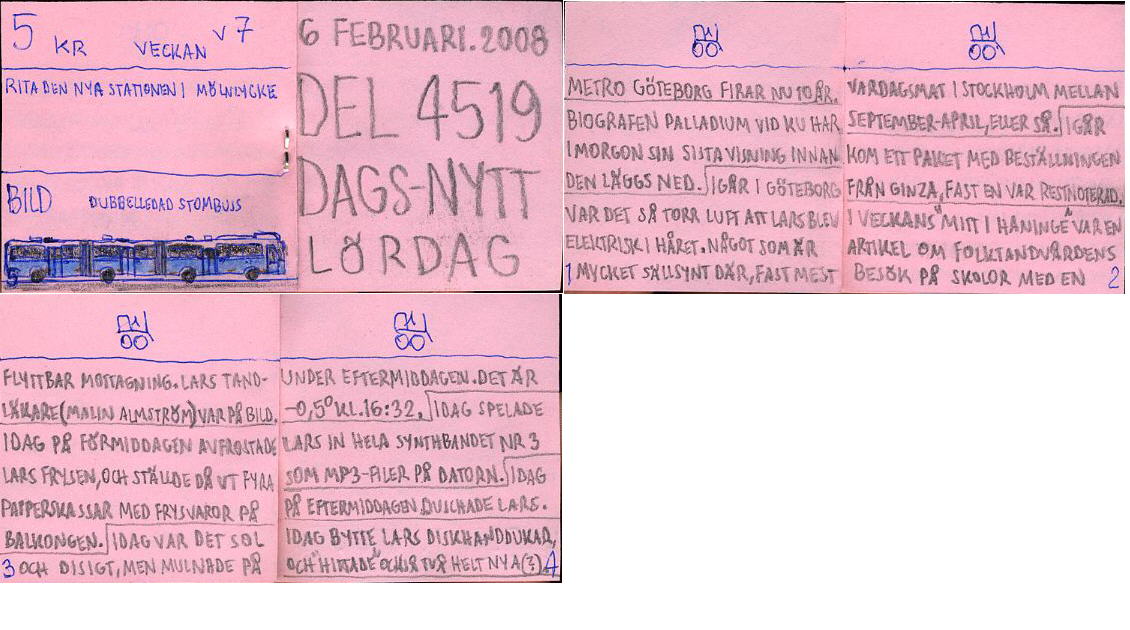 5 KR VECKAN V7
RITA DEN NYA STATIONEN I MÖLNLYCKE
BILD DUBBELLEDAD STOMBUSS
5
6 FEBRUARI. 2008
DEL 4519
DAGS-NYTT
LÖRDAG
METRO GÖTEBORG FIRAR NU 10 ÅR.
BIOGRAFEN PALLADIUM VID KU HAR
IMORGON SIN SISTA VISNING INNAN
DEN LÄGGS NED. IGÅR I GÖTEBORG
VAR DET SÅ TORR LUFT ATT LARS BLEV
ELEKTRISK I HÅRET. NÅGOT SOM ÄR
1 MYCKET SÄLLSYNT DÄR, FAST MEST
VARDAGSMAT I STOCKHOLM MELLAN
SEPTEMBER-APRIL, ELLER SÅ. IGÅR
KOM ETT PAKET MED BESTÄLLNINGEN
FRÅN GINZA, FAST EN VAR RESTNOTERAD.
I VECKANS "MITT I HANINGE" VAR EN
ARTIKEL OM FOLKTANDVÅRDENS
BESÖK PÅ SKOLOR MED EN 2
FLYTTBAR MOTTAGNING. LARS TAND-
LÄKARE (MALIN ALMSTRÖM) VAR PÅ BILD.
IDAG PÅ FÖRMIDDAGEN AVFROSTADE
LARS FRYSEN, OCH STÄLLDE DÅ UT FYRA
PAPPERSKASSAR MED FRYSVAROR PÅ
BALKONGEN. IDAG VAR DET SOL
3 OCH DISIGT, MEN MULNADE PÅ
UNDER EFTERMIDDAGEN. DET ÄR
-0,5° KL. 16:32. IDAG SPELADE
LARS IN HELA SYNTHBANDET NR 3
SOM MP3-FILER PÅ DATORN. IDAG
PÅ EFTERMIDDAGEN DUSCHADE LARS.
IDAG BYTTE LARS DISKHANDDUKAR,
OCH "HITTADE" TVÅ HELT NYA (?) 4